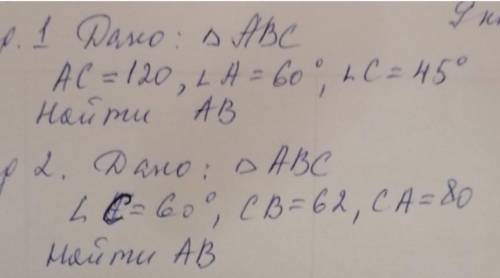 р. 1 Дано: △ ABC
AC = 120, ∠A = 60°, ∠C = 45°
Найти AB
р 2. Дано: △ ABC
∠C = 60°, CB = 62, CA = 80
Найти AB